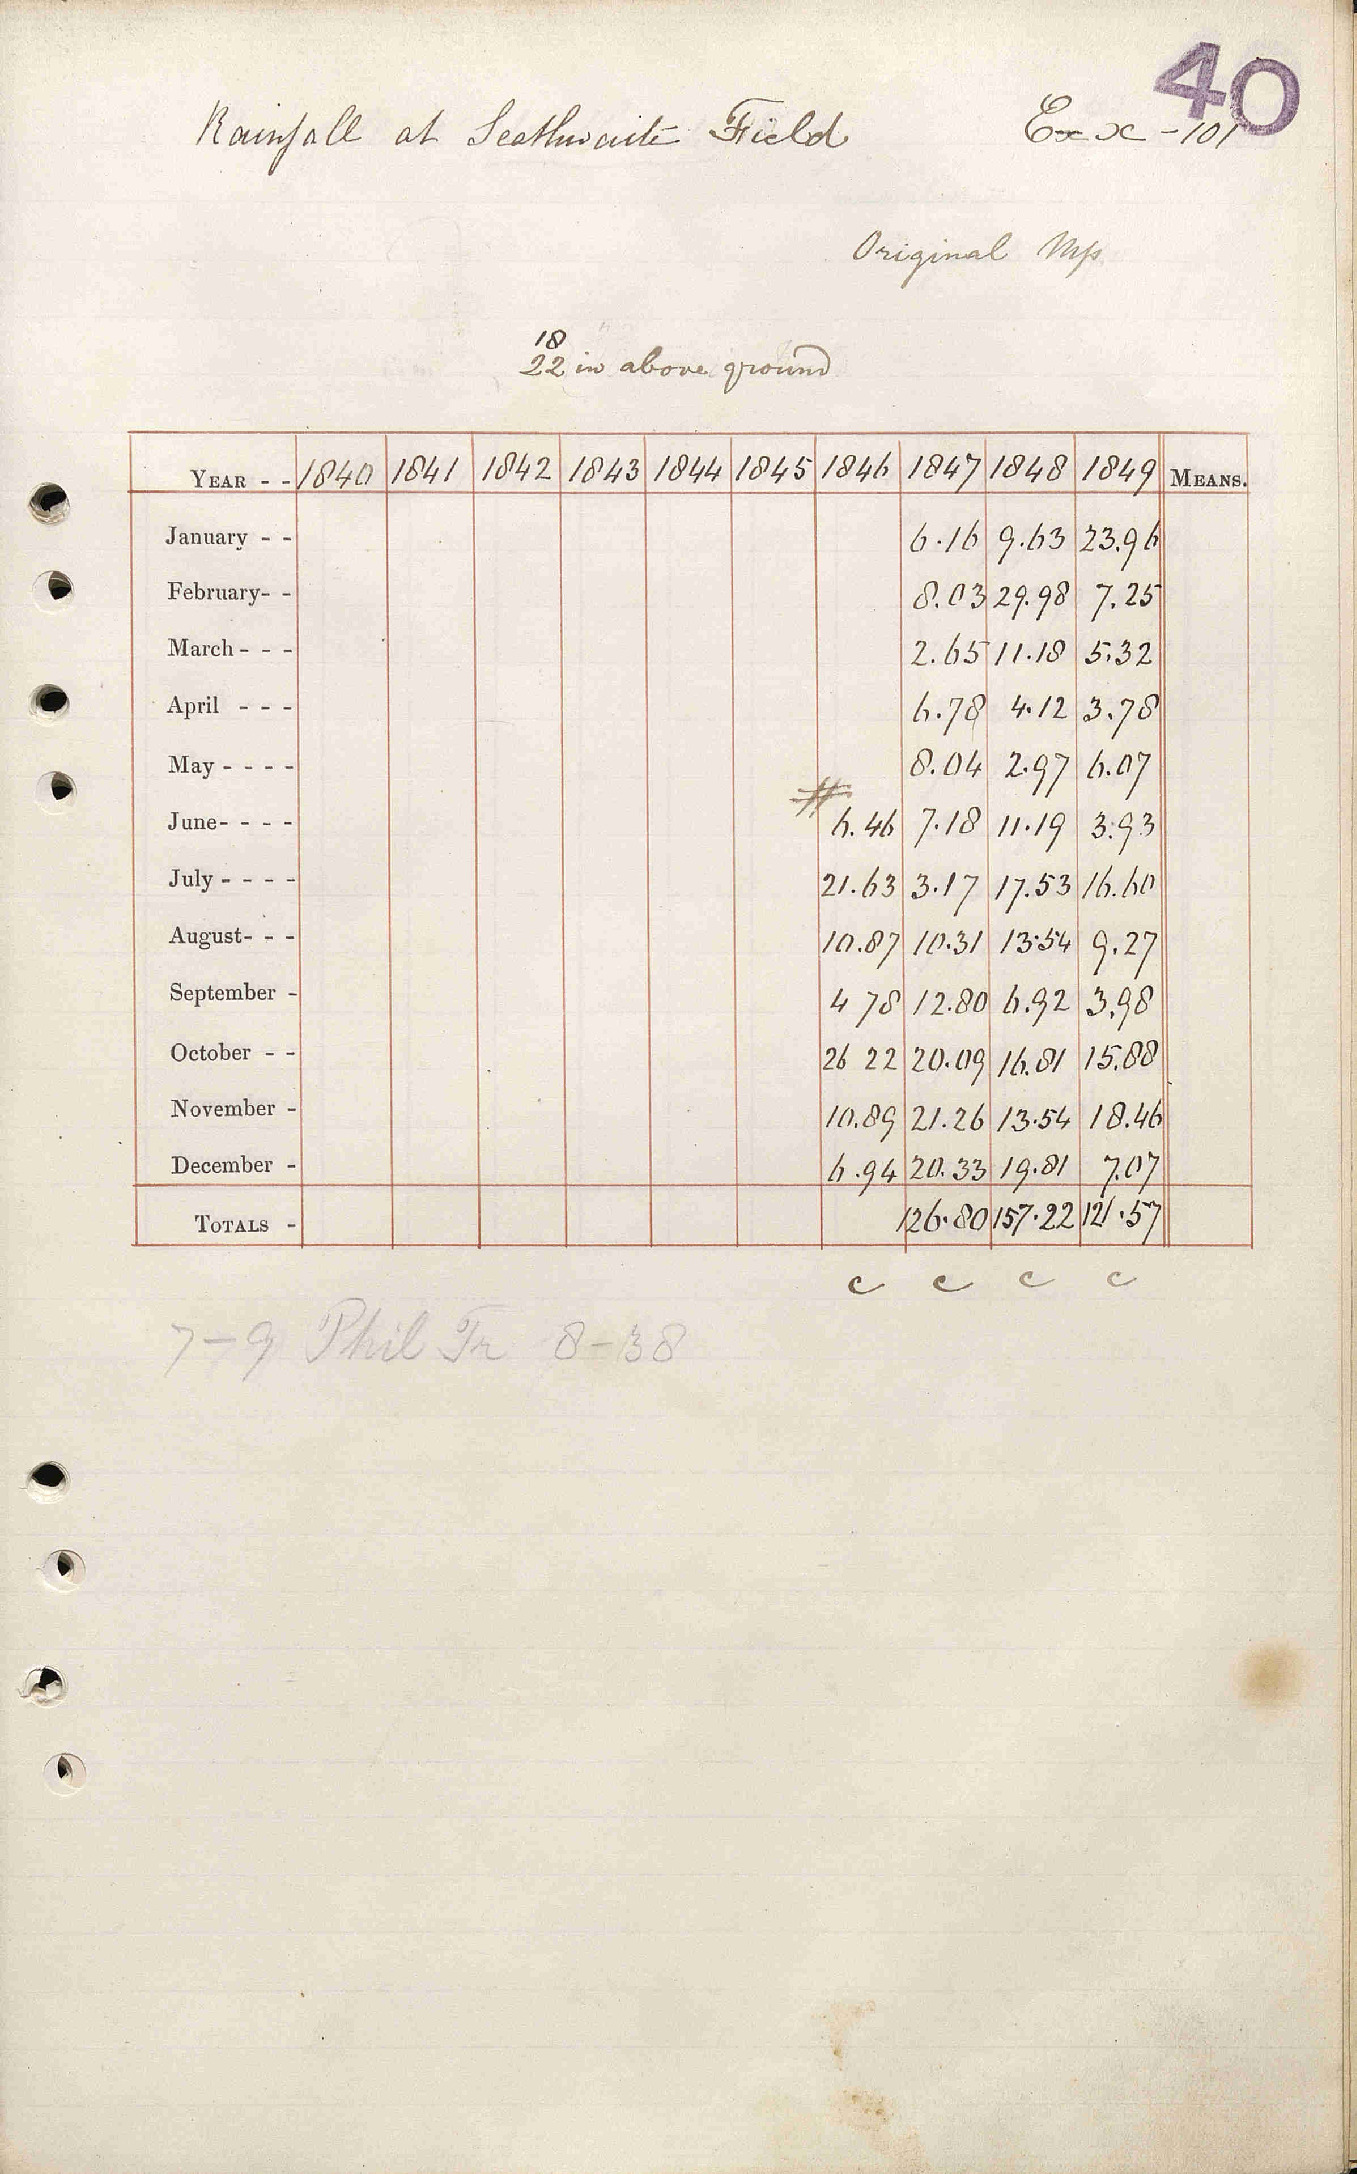 40
Rainfall at Seathwaite Field Ex x - 101
Original Mss
18
22 in above ground
YEAR - - 1840 1841 1842 1843 1844 1845 1846 1847 1848 1849 MEANS.
January - - 6.16 9.63 23.96
February- - 8.03 29.98 7.25
March - - - 2.65 11.18 5.32
April - - - 6.78 4.12 3.78
May - - - - 8.04 2.97 6.07
June- - - - # 6.46 7.18 11.19 3.93
July - - - - 21.63 3.17 17.53 16.60
August- - - 10.87 10.31 13.54 9.27
September - 4 78 12.80 6.92 3.98
October - - 26 22 20.09 16.81 15.88
November - 10.89 21.26 13.54 18.46
December - 6.94 20.33 19.81 7.07
TOTALS - 126.80 157.22 121.57
c c c c
7-9 Phil Tr 8-38